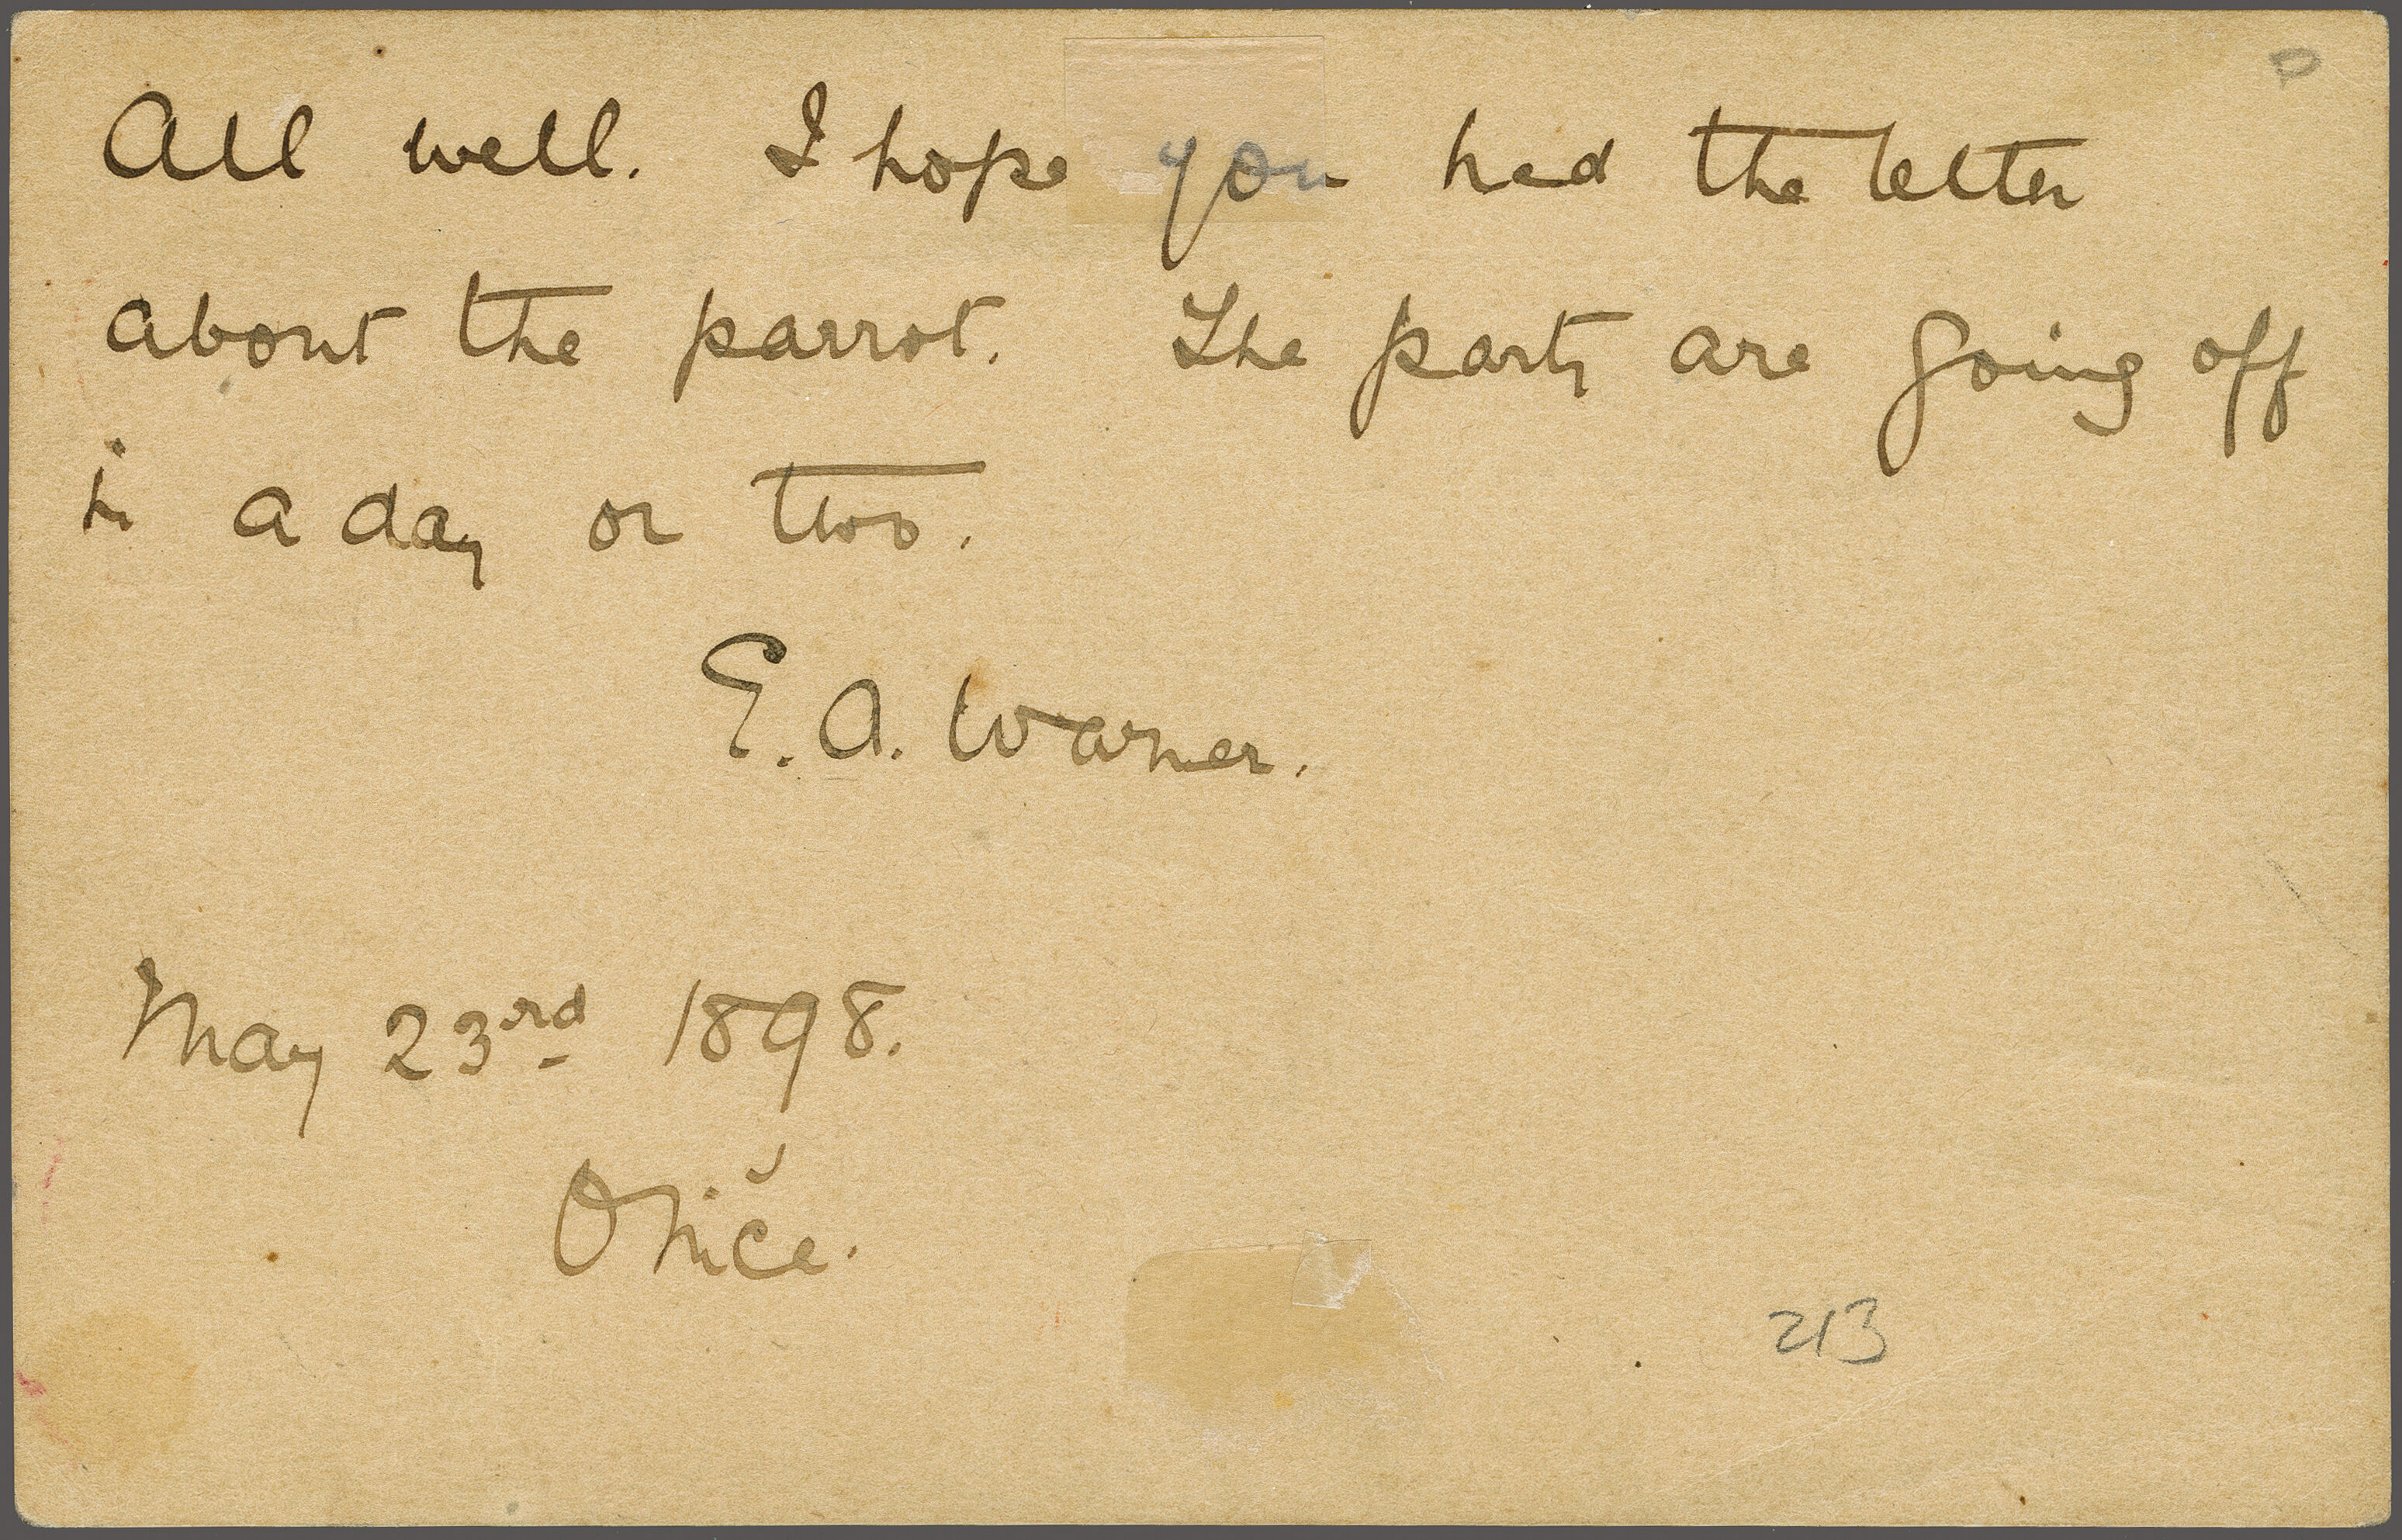 All well. I hope you had the letter
about the parrot. The party are going off
in a day or two.
E. A. Warner.
May 23rd 1898.
Oniče.
213